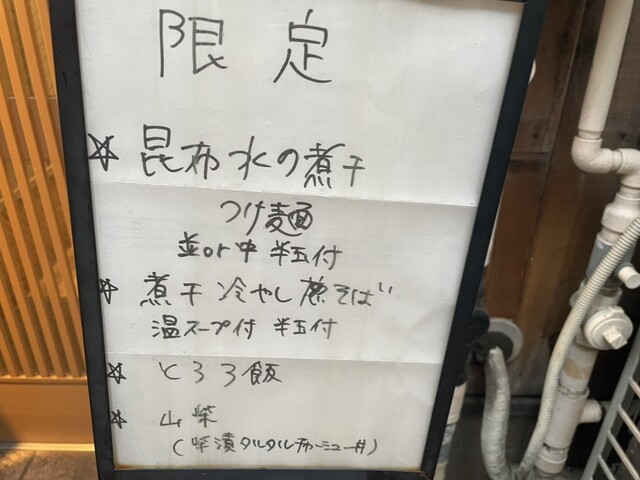 限定
☆ 昆布水の煮干
つけ麺
並or中 半玉付
☆ 煮干冷やし蕎そば
温スープ付 半玉付
☆ とろろ飯
☆ 山柴
(柴漬タルタルチャーシュー丼)